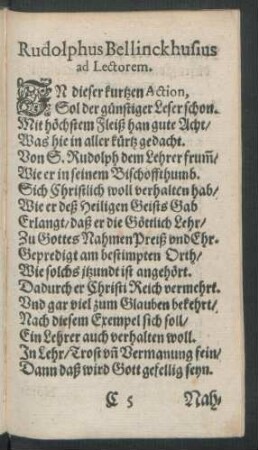 Rudolphus Bellinckhusius
ad Lectorem.
IN dieser kurtzen Action,
Sol der günstiger Leser schon.
Mit höchstem Fleiß han gute Acht/
Was hie in aller kürtz gedacht.
Von S. Rudolph dem Lehrer frum̃/
Wie er in seinem Bischoffthumb.
Sich Christlich woll verhalten hab/
Wie er deß Heiligen Geists Gab
Erlangt/ daß er die Göttlich Lehr/
Zu Gottes Nahmen Preiß vnd Ehr.
Gepredigt am bestimpten Orth/
Wie solchs jtzundt ist angehört.
Dadurch er Christi Reich vermehrt.
Vnd gar viel zum Glauben bekehrt/
Nach diesem Exempel sich soll/
Ein Lehrer auch verhalten woll.
In Lehr/ Trost vñ Vermanung fein/
Dann daß wird Gott gefellig seyn.
C 5 Nah-